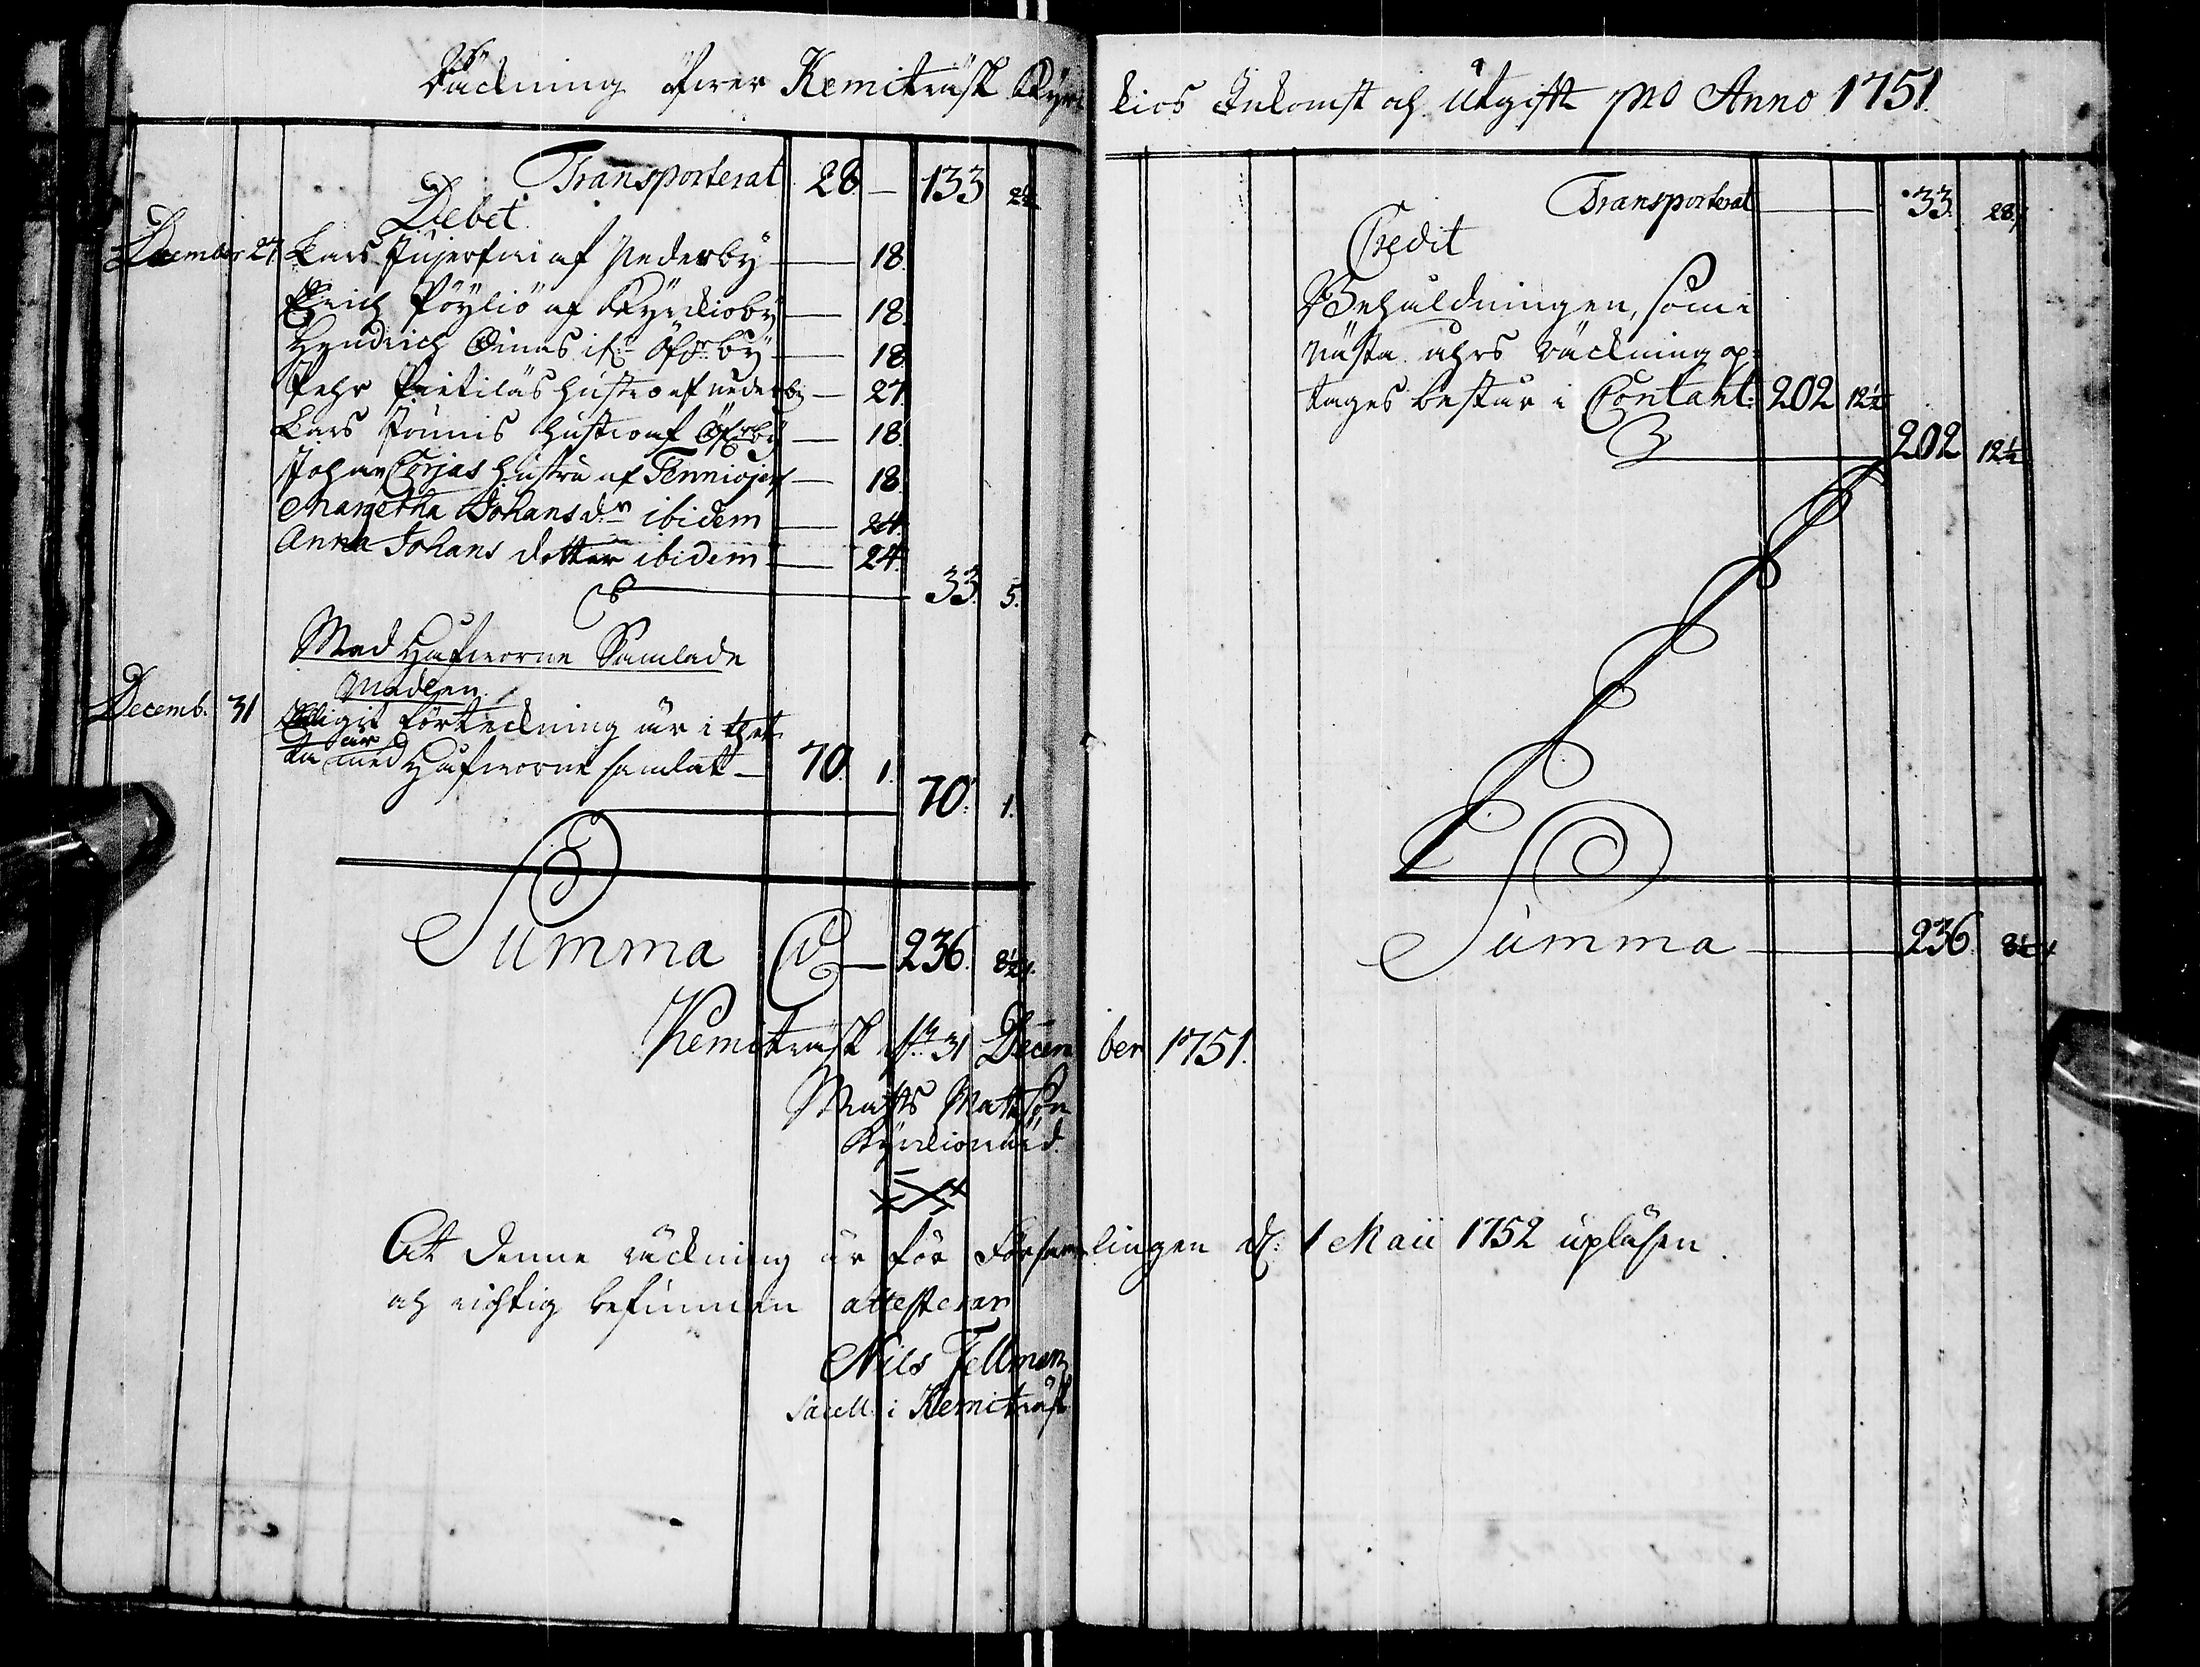 Räckning öfwer Kemiträsk Kyrkios Inkomst och Utgifft pro Anno 1751.
Transporterat 28 — 133 2½
Debet.
December 27 Lars af Nederby — 18.
Erich Pöyliö af Kyrckioby — 18.
Hendrich Oinas if:n Öfr by — 18
Pehr Pietiläs hustro af nederby — 27.
Lars hustro af Öfr by — 18.
Johan Corjas hustru af Tenniojerf — 18.
Margetha Johans dr ibidem — 24.
Anna Johans dotter ibidem — 24.
33. 5.
Med Håfworne Samlade
Medlen.
Decemb. 31 Enligit förteckning är i thet-
ta år med Håfworne samlat — 70. 1.
70. 1.
Summa — 236. 8½
Kemiträsk d. 31 December 1751.
Matts Mattsson
Kyrckiowärd.
At denne räckning är för Församlingen d: 1 Maii 1752 upläsen
och richtig befunnen attesterar
Nils Fellman
Sacell. i Kemiträsk
Transporterat — 33. 28.
Credit
Behåldningen, som i
nästa åhrs räckning op-
tages består i Contant: 202 12½
202 12½
Summa — 236. 8½